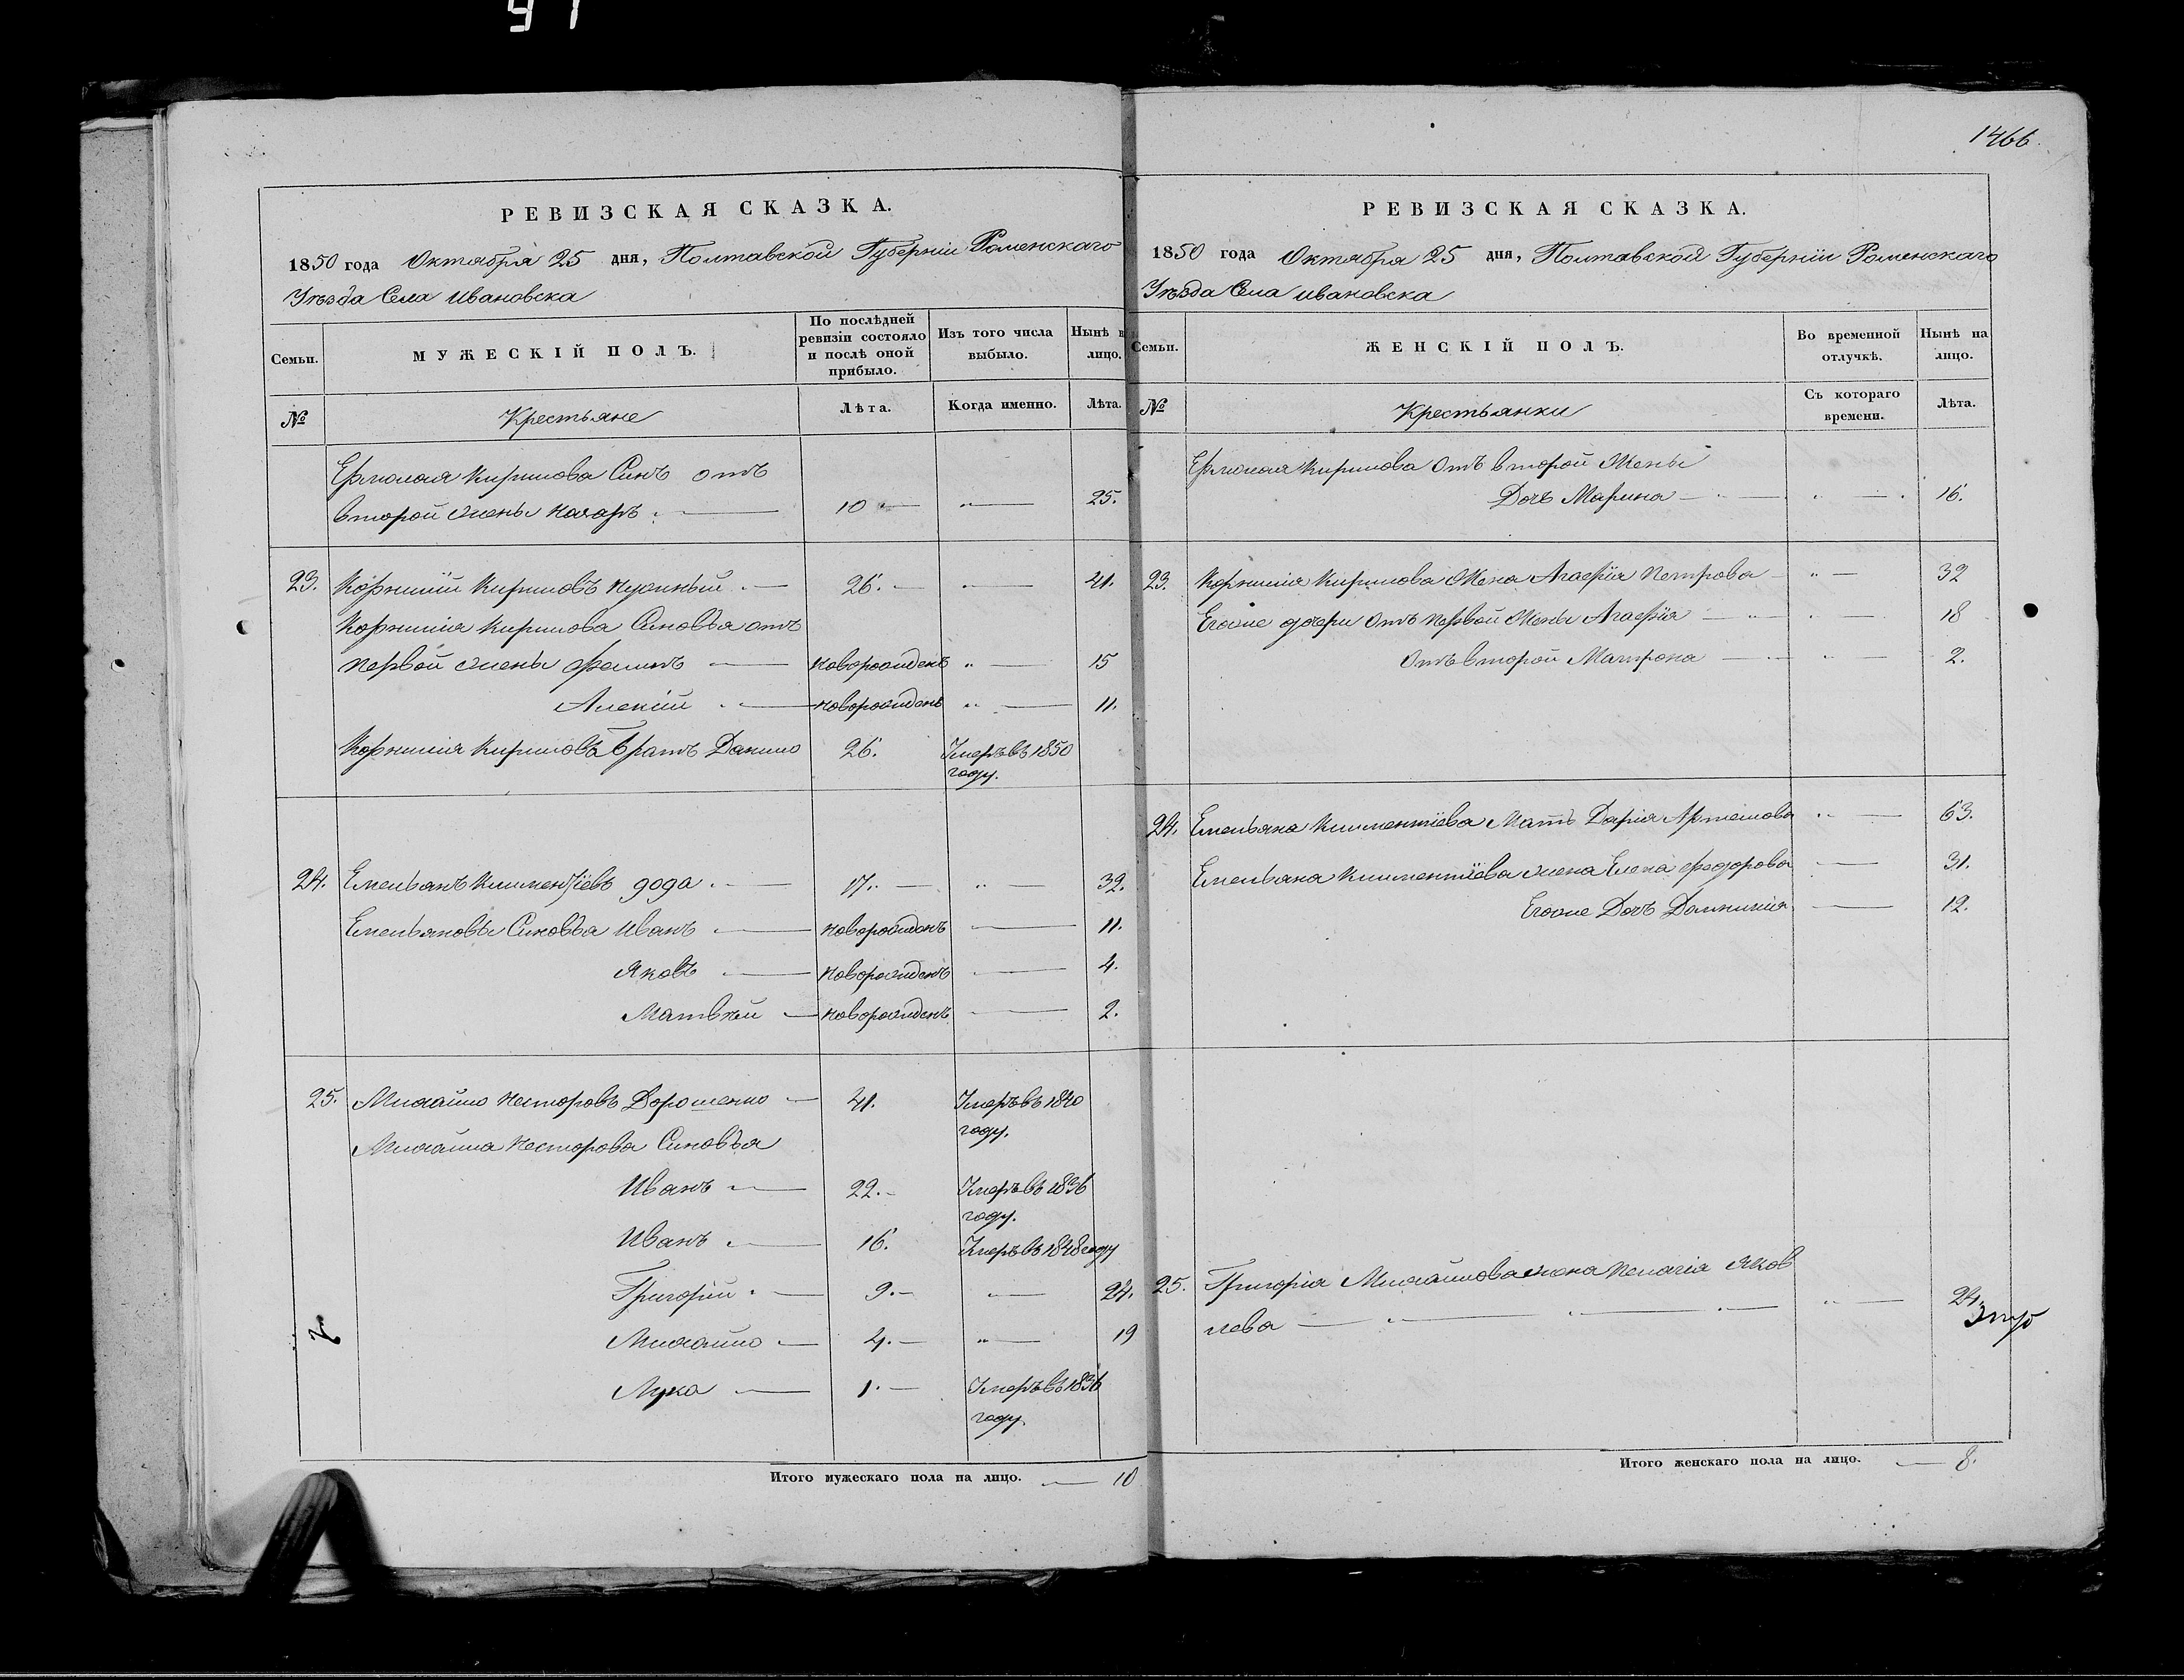 1466.
РЕВИЗСКАЯ СКАЗКА.
1850 года Октября 25 дня, Полтавской Губерніи Роменскаго
Уѣзда Села Ивановска
Семьи. МУЖЕСКІЙ ПОЛЪ. По послѣдней ревизіи состояло и послѣ оной прибыло. Изъ того числа выбыло. Нынѣ на лицо.
№ Крестьяне Лѣта. Когда именно. Лѣта.
Ермолая Кирилова Синъ отъ
второй жены Назаръ 10 25.
23. Корнилій Кириловъ 26. 41.
Корнилія Кирилова Сыновья отъ
первой жены Филипъ новорожденъ 15
Алексій новорожденъ 11.
Корнилія Кирилова Братъ Данило 26. Умеръ въ 1850
году.
24. Емельянъ Климентіевъ дода 17. 32.
Емельяновы Сыновья Иванъ новорожденъ 11.
Яковъ новорожденъ 4.
Матвѣй новорожденъ 2.
25. Михайло Несторовъ Дорошенко 41. Умеръ въ 1840
году.
Михайла Несторова Сыновья
Иванъ 22. Умеръ въ 1836
году.
Иванъ 16. Умеръ въ 1848 году
Григорій 9. 24.
Михайло 4. 19
Лука 1. Умеръ въ 1836
году.
Итого мужескаго пола на лицо. 10
РЕВИЗСКАЯ СКАЗКА.
1850 года Октября 25 дня, Полтавской Губерніи Роменскаго
Уѣзда Села Ивановска
Семьи. ЖЕНСКІЙ ПОЛЪ. Во временной отлучкѣ. Нынѣ на лицо.
№ Крестьянки Съ котораго времени. Лѣта.
Ермолая Кирилова отъ второй Жены
Дочь Марина 16.
23. Корнилія Кирилова Жена Агафія Петрова 32
Егоже дочери отъ первой Жены Агафія 18
отъ второй Матрона 2.
24. Емельяна Климентіева Мать Дарія Артемова 63.
Емельяна Климентіева жена Елена Федорова 31.
Егоже Дочь Домникія 12.
25. Григорія Михайлова жена Пелагія Яков
лева 24.
Итого женскаго пола на лицо. 8.